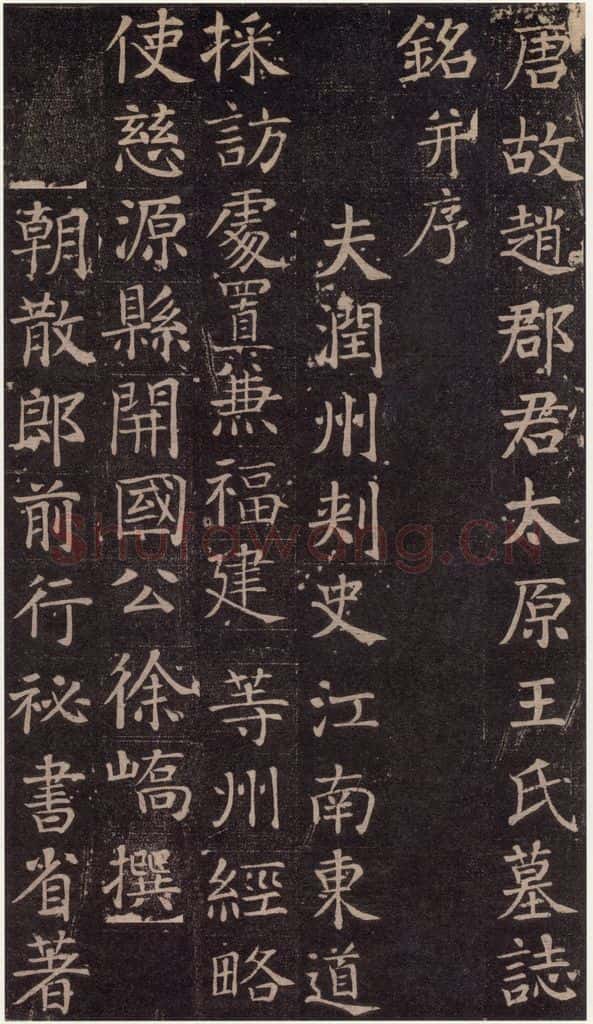 唐故趙郡君大原王氏墓誌
銘并序
夫潤州刺史江南東道
採訪處置兼福建等州經略
使慈源縣開國公徐嶠撰
朝散郎前行祕書省著
Shufawang.CN